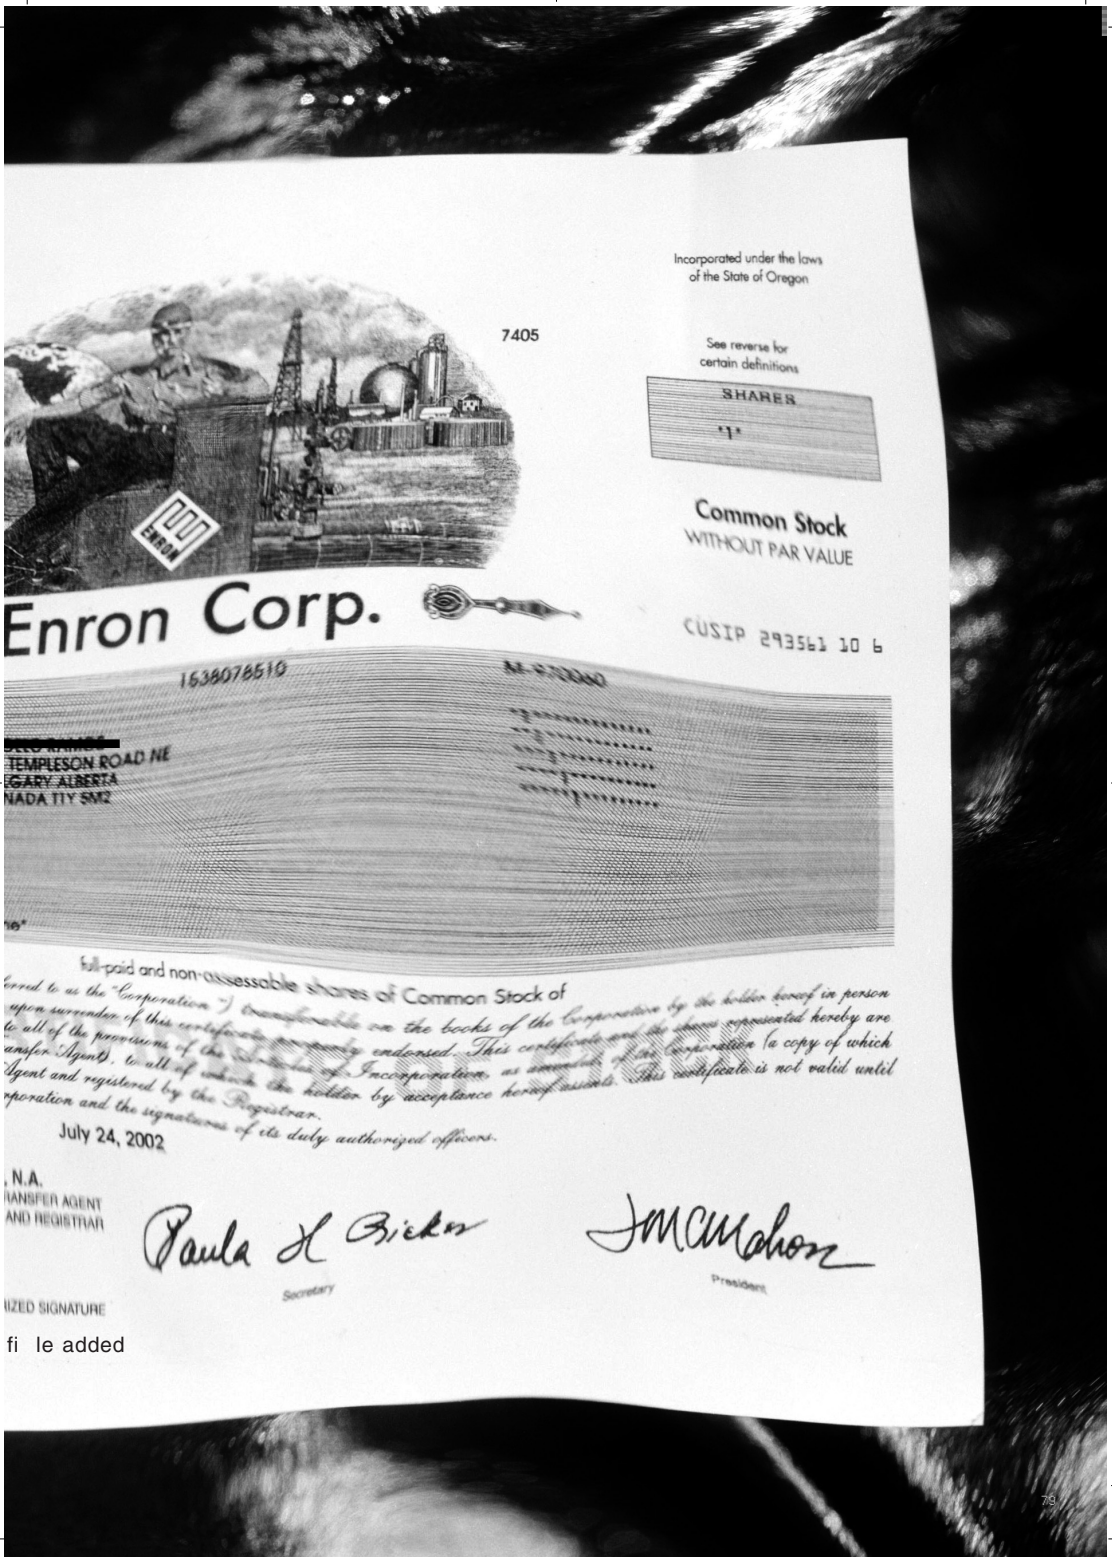 Incorporated under the laws
of the State of Oregon
7405
See reverse for
certain definitions
SHARES
*1*
ENRON
Common Stock
WITHOUT PAR VALUE
Enron Corp.
CUSIP 293561 10 6
1638078510
TEMPLESON ROAD NE
LGARY ALBERTA
NADA T1Y 5M2
ne*
full-paid and non-assessable shares of Common Stock of
erred to as the "Corporation") transferable on the books of the Corporation by the holder hereof in person
upon surrender of this certificate properly endorsed. This certificate and the shares represented hereby are
to all of the provisions of the Articles of Incorporation, as amended, of the Corporation (a copy of which
ansfer Agent), to all of which the holder by acceptance hereof assents. This certificate is not valid until
Agent and registered by the Registrar.
rporation and the signatures of its duly authorized officers.
July 24, 2002
, N.A.
RANSFER AGENT
AND REGISTRAR
Paula H Rieker
JMcMahon
Secretary
President
IZED SIGNATURE
fi le added
79